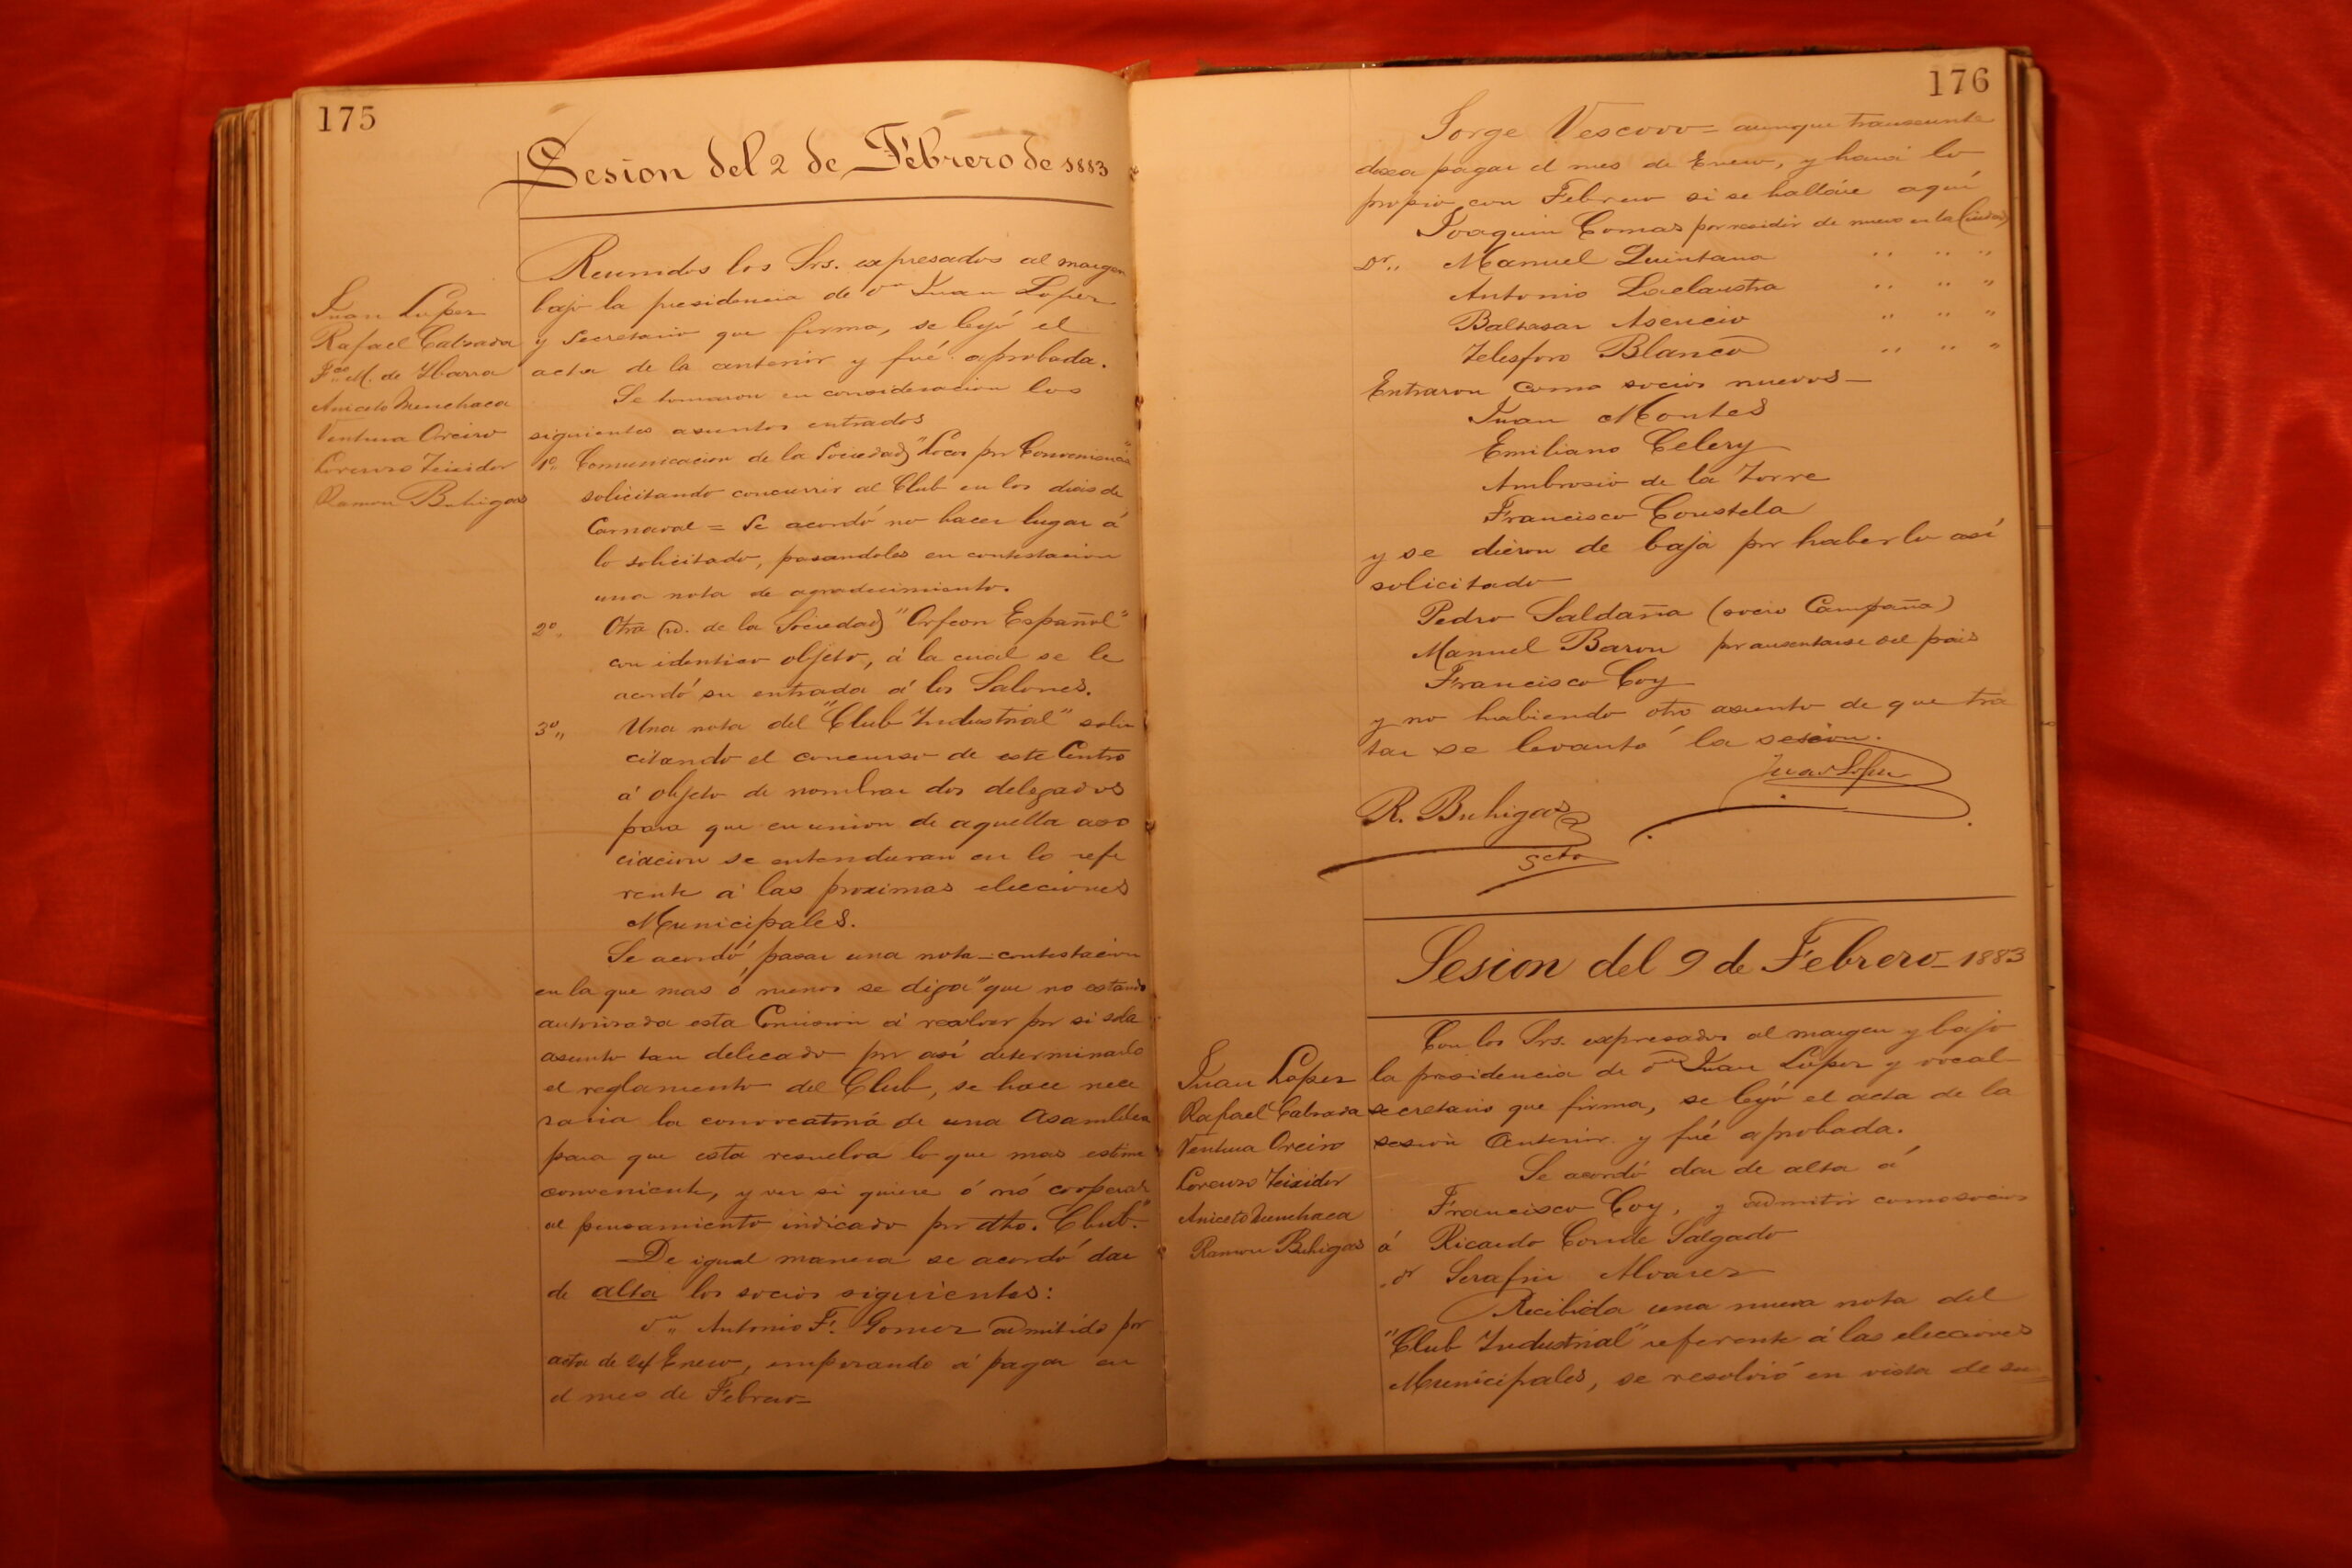 175
Sesion del 2 de Febrero de 1883
Juan Lopez
Rafael Calzada
Fco. M. de Ybarra
Aniceto Menchaca
Ventura Oreiro
Lorenzo Teixidor
Ramon Buhigas
Reunidos los Srs. expresados al margen
bajo la presidencia de Dn Juan Lopez
y Secretario que firma, se leyó el
acta de la anterior y fué aprobada.
Se tomaron en consideracion los
siguientes asuntos entrados
1º,, Comunicacion de la Sociedad "Locos por Conveniencia"
solicitando concurrir al Club en los dias de
Carnaval = Se acordó no hacer lugar á
lo solicitado, pasandoles en contestacion
una nota de agradecimiento.
2º,, Otra id. de la Sociedad "Orfeon Español"
con identico objeto, á la cual se le
acordó su entrada á los Salones.
3º,, Una nota del "Club Industrial" soli
citando el concurso de este Centro
á objeto de nombrar dos delegados
para que en union de aquella aso
ciacion se entendieran en lo refe
rente á las proximas elecciones
Municipales.
Se acordó pasar una nota-contestacion
en la que mas ó menos se diga "que no estando
autorizada esta Comision á resolver por si sola
asunto tan delicado por así determinarlo
el reglamento del Club, se hace nece
saria la convocatoriá de una Asamblea
para que esta resuelva lo que mas estime
conveniente, y ver si quiere ó nó cooperar
al pensamiento indicado por dho. Club."
De igual manera se acordó dar
de alta los socios siguientes:
Dn,, Antonio F. Gomez admitido por
acta de 24 Enero, empezando á pagar en
el mes de Febrero=
176
Jorge Vescovo = aunque transeunte
desea pagar el mes de Enero, y hará lo
propio con Febrero si se halláre aquí
Joaquin Comas por residir de nuevo en la Ciudad
Dr,, Manuel Quintana ,, ,, ,,
Antonio Laclaustra ,, ,, ,,
Baltasar Asencio ,, ,, ,,
Telesforo Blanco ,, ,, ,,
Entraron como socios nuevos—
Juan Montes
Emiliano Celery
Ambrosio de la Torre
Francisco Coustela
y se diéron de baja por haberlo así
solicitado
Pedro Saldaña (socio Campaña)
Manuel Baron por ausentarse del pais
Francisco Coy
y no habiendo otro asunto de que tra
tar se levantó la sesion.
Juan Lopez
R. Buhigas
Scto
Sesion del 9 de Febrero_1883
Juan Lopez
Rafael Calzada
Ventura Oreiro
Lorenzo Teixidor
Aniceto Menchaca
Ramon Buhigas
Con los Srs. expresados al margen y bajo
la presidencia de Dn Juan Lopez y vocal
secretario que firma, se leyó el acta de la
sesion anterior y fué aprobada.
Se acordó dar de alta á
Francisco Coy, y admitir como socios
á Ricardo Conde Salgado
Dr Serafin Alvarez
Recibida una nueva nota del
"Club Industrial" referente á las elecciones
Municipales, se resolvió en vista de su